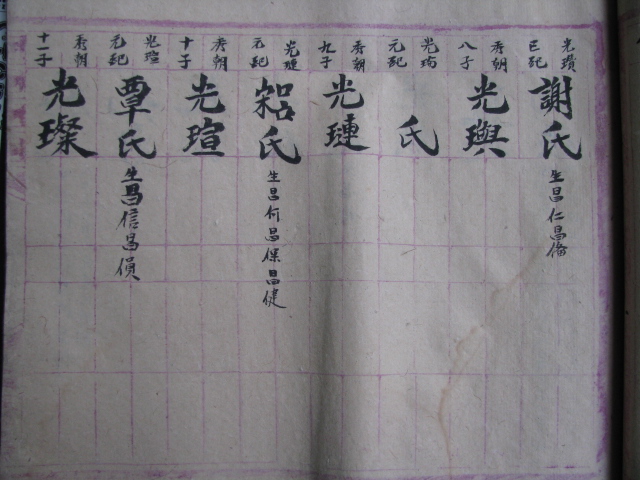 光瓚
配
謝氏
生昌仁昌
秀朝
八子
光璵
光
元配
氏
秀朝
九子
光璉
光璉
元配
氏
生昌何昌保昌健
秀朝
十子
光瑄
光瑄
元配
覃氏
生昌信昌
秀朝
十一子
光璨